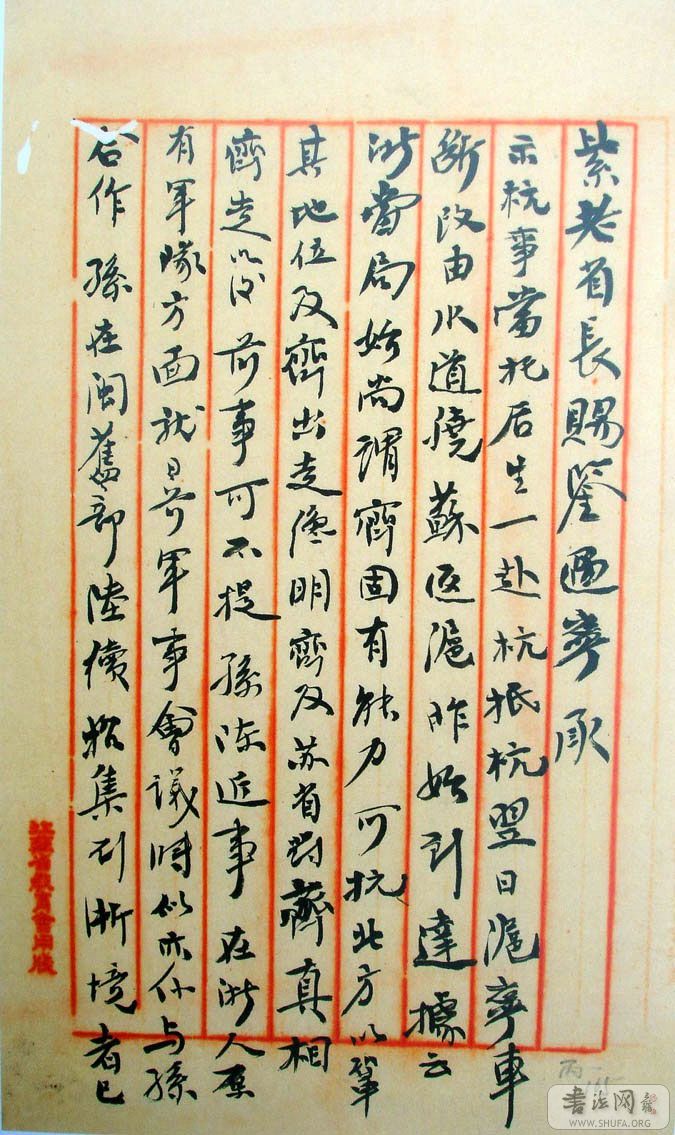 紫老省長賜鑒過寧承
示杭事當托居生一赴杭抵杭翌日滬寧車
斷改由水道繞蘇返滬昨始到達據云
浙當局始尚謂齊固有能力可抗北方以鞏
其地位及齊出走僞明齊及苏省對齊真相
齊走以後前事可不提孫陳近事在浙人原
有軍隊方面就日前軍事會議時似亦仍与孫
合作孫在閩舊部陸續招集到浙境者已
江蘇省教育會用牋
丙
書法网
WWW.SHUFA.ORG